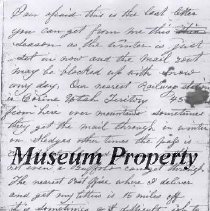 I am afraid this is the last letter
you can get from me this
season as the winter is just
set in now and the mail rout
may be blocked up with snow
any day. Our nearest Railway station
is Corinne Utah Territory 45
from here over mountains sometimes
they get the mail through in winter
on sledges other times the pass is
Museum Property
not even a Buffalo can get through.
The nearest Post office where I deliver
and get my letters is 15 miles off
it is sometimes